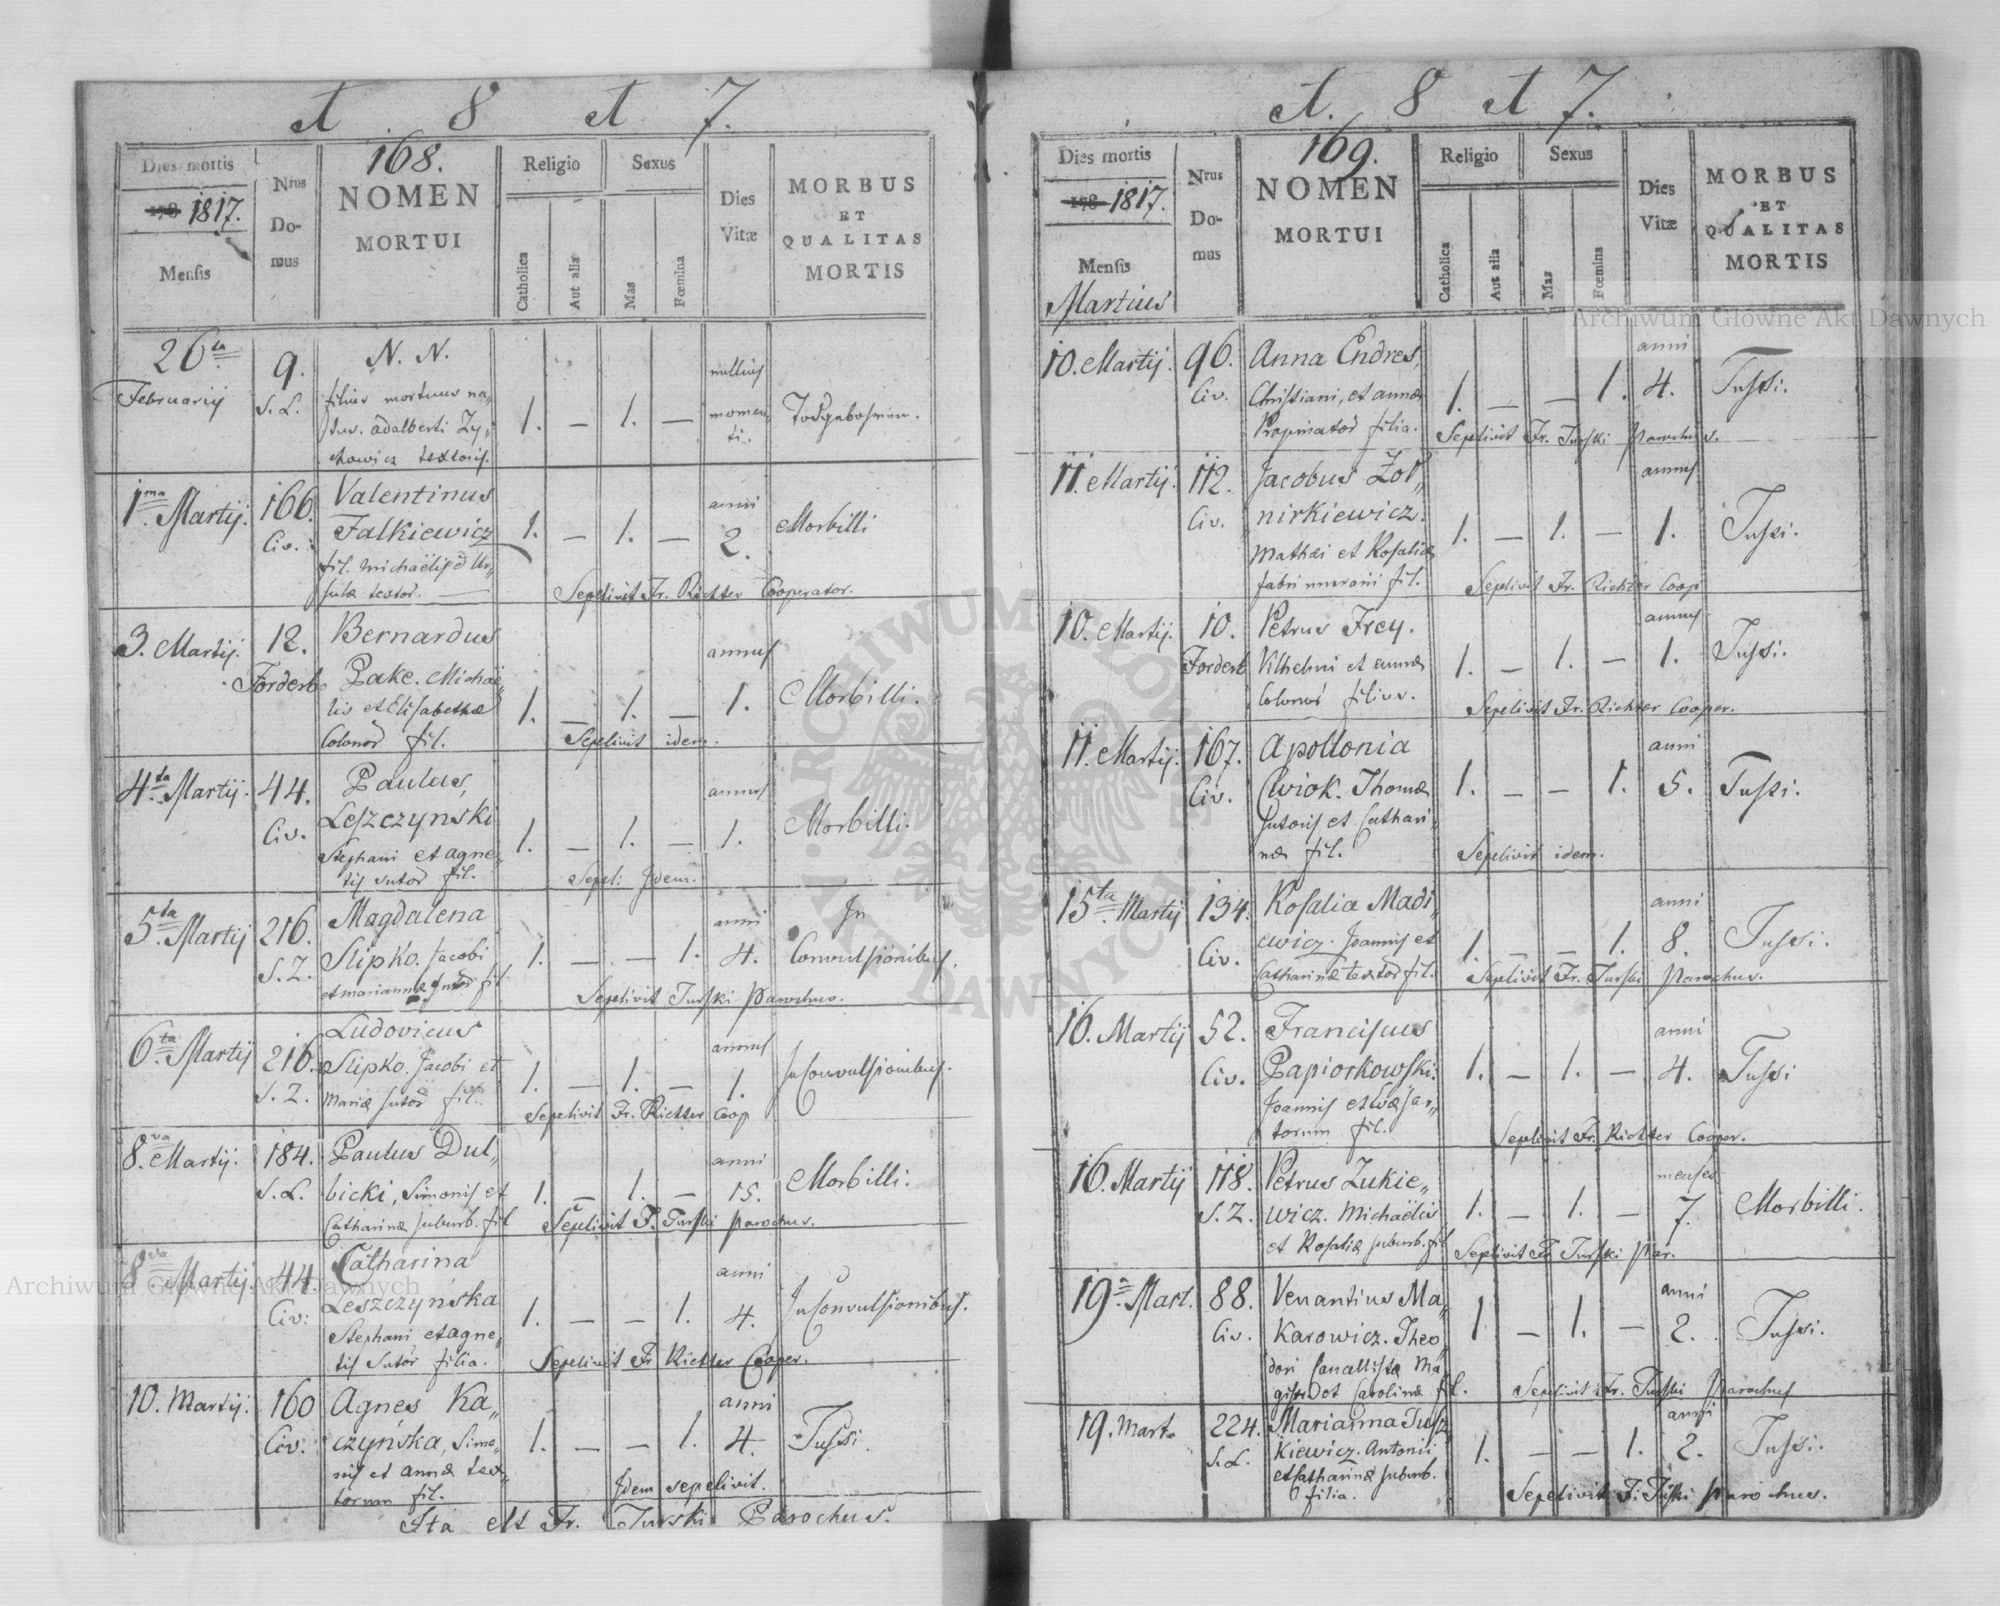 et 8 et 7.
168.
Dies mortis
178 1817.
Mensis
Nrus
Do-
mus
NOMEN
MORTUI
Religio
Catholica
Aut alia
Sexus
Mas
Fœmina
Dies
Vitæ
MORBUS
ET
QUALITAS
MORTIS
26ta
Februarij
9.
S. L.
N. N.
filius mortuus na„
tus. Adalberti Zy„
chowicz textoris.
1. — 1. —
nullius
momen„
ti.
Todgebohren.
1ma Martij.
166.
Civ.
Valentinus
Falkiewicz
fil. Michaëlis et Ur„
sulæ textor.
1. — 1. —
anni
2.
Morbilli
Sepelivit Fr. Richter Cooperator.
3. Martij.
12.
Forderb
Bernardus
Pake. Michaë„
lis et Elisabethæ
Colonor fil.
1. — 1. —
annus
1.
Morbilli.
Sepelivit idem.
4ta Martij.
44.
Civ.
Paulus,
Leszczyński
Stephani et Agne„
tis sutor fil.
1. — 1. —
annus
1.
Morbilli.
Sepel: Idem.
5ta Martij
216.
S. Z.
Magdalena
Slipko. Jacobi
et Mariannæ sutor fil
1. — — 1.
anni
4.
In
Convulsionibus.
Sepelivit Turski Parochus.
6ta Martij
216.
S. Z.
Ludovicus
Slipko. Jacobi et
Mariæ sutor fil.
1. — 1. —
annus
1.
In Convulsionibus.
Sepelivit Fr. Richter Coop
8va Martij.
184.
S. L.
Paulus Dul„
bicki, Simonis et
Catharinæ suburb. fil
1. — 1. —
anni
15.
Morbilli.
Sepelivit F. Turski Parochus.
8va Martij.
44.
Civ:
Catharina
Leszczyńska
Stephani et Agne„
tis Sutor filia.
1. — — 1.
anni
4.
In Convulsionibus.
Sepelivit Fr Richter Cooper.
10. Martij.
160
Civ.
Agnes Ka„
czyńska, Simo„
nis et Annæ tex„
torum fil.
1. — — 1.
anni
4.
Tussi.
Idem sepelivit.
Ita est Fr. Turski Parochus.
et. 8 et 7.
169.
Dies mortis
178 1817.
Mensis
Martius
Nrus
Do-
mus
NOMEN
MORTUI
Religio
Catholica
Aut alia
Sexus
Mas
Fœmina
Dies
Vitæ
MORBUS
ET
QUALITAS
MORTIS
10. Martij.
96.
Civ.
Anna Endres,
Christiani, et Annæ
Propinator filia.
1. — — 1.
anni
4.
Tussi.
Sepelivit Fr. Turski Parochus.
11. Martij.
112.
Civ.
Jacobus Zoł„
nirkiewicz.
Mathæi et Rosaliæ
fabri murarii fil.
1. — 1. —
annus
1.
Tussi.
Sepelivit Fr. Richter Coop
10. Martij.
10.
Forderb
Petrus Frey.
Vilhelmi et Annæ
Colonor filius.
1. — 1. —
annus
1.
Tussi.
Sepelivit Fr. Richter Cooper.
11. Martij.
167.
Civ.
Apollonia
Cwiok. Thomæ
Sutoris et Cathari„
næ fil.
1. — — 1.
anni
5.
Tussi.
Sepelivit idem.
15ta Martij
134.
Civ.
Rosalia Madi„
ewicz. Joannis et
Catharinæ textor fil.
1. — — 1.
anni
8.
Tussi.
Sepelivit Fr. Turski Parochus.
16. Martij
52.
Civ.
Franciscus
Papiorkowski.
Joannis et Evæ sar„
torum fil.
1. — 1. —
anni
4.
Tussi
Sepelivit Fr. Richter Cooper.
16. Martij
118.
S. Z.
Petrus Zukie„
wicz. Michaëlis
et Rosaliæ suburb. fil
1. — 1. —
menses
7.
Morbilli.
Sepelivit Fr Turski Par.
19a Mart.
88.
Civ.
Venantius Ma„
karowicz. Theo„
dori Canallistæ Ma
gistri et Carolinæ fil.
1. — 1. —
anni
2.
Tussi.
Sepelivit Fr. Turski Parochus
19. Mart.
224.
S. L.
Marianna Tusz„
kiewicz. Antonii
et Catharinæ suburb.
filia.
1. — — 1.
anni
2.
Tussi.
Sepelivit F. Turski Parochus.
Archiwum Główne Akt Dawnych
Archiwum Główne Akt Dawnych
ARCHIWUM GŁÓWNE AKT DAWNYCH